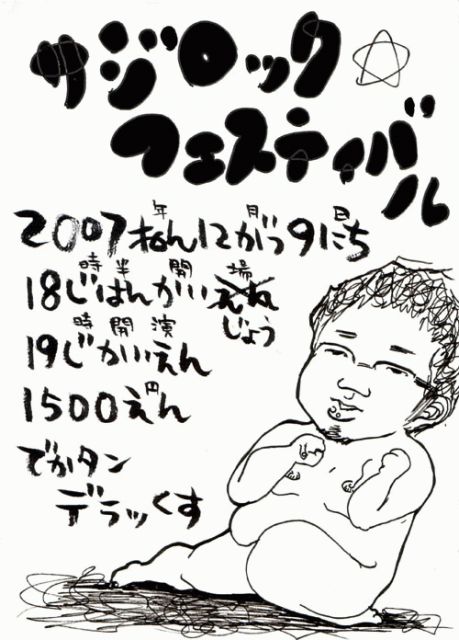 サジロック☆
フェスティバル
年 月 日
2007ねん12がつ9にち
時半 開 場
18じはんがいえね
じょう
時 開 演
19じかいえん
円
1500えん
でかタン
デラッくす